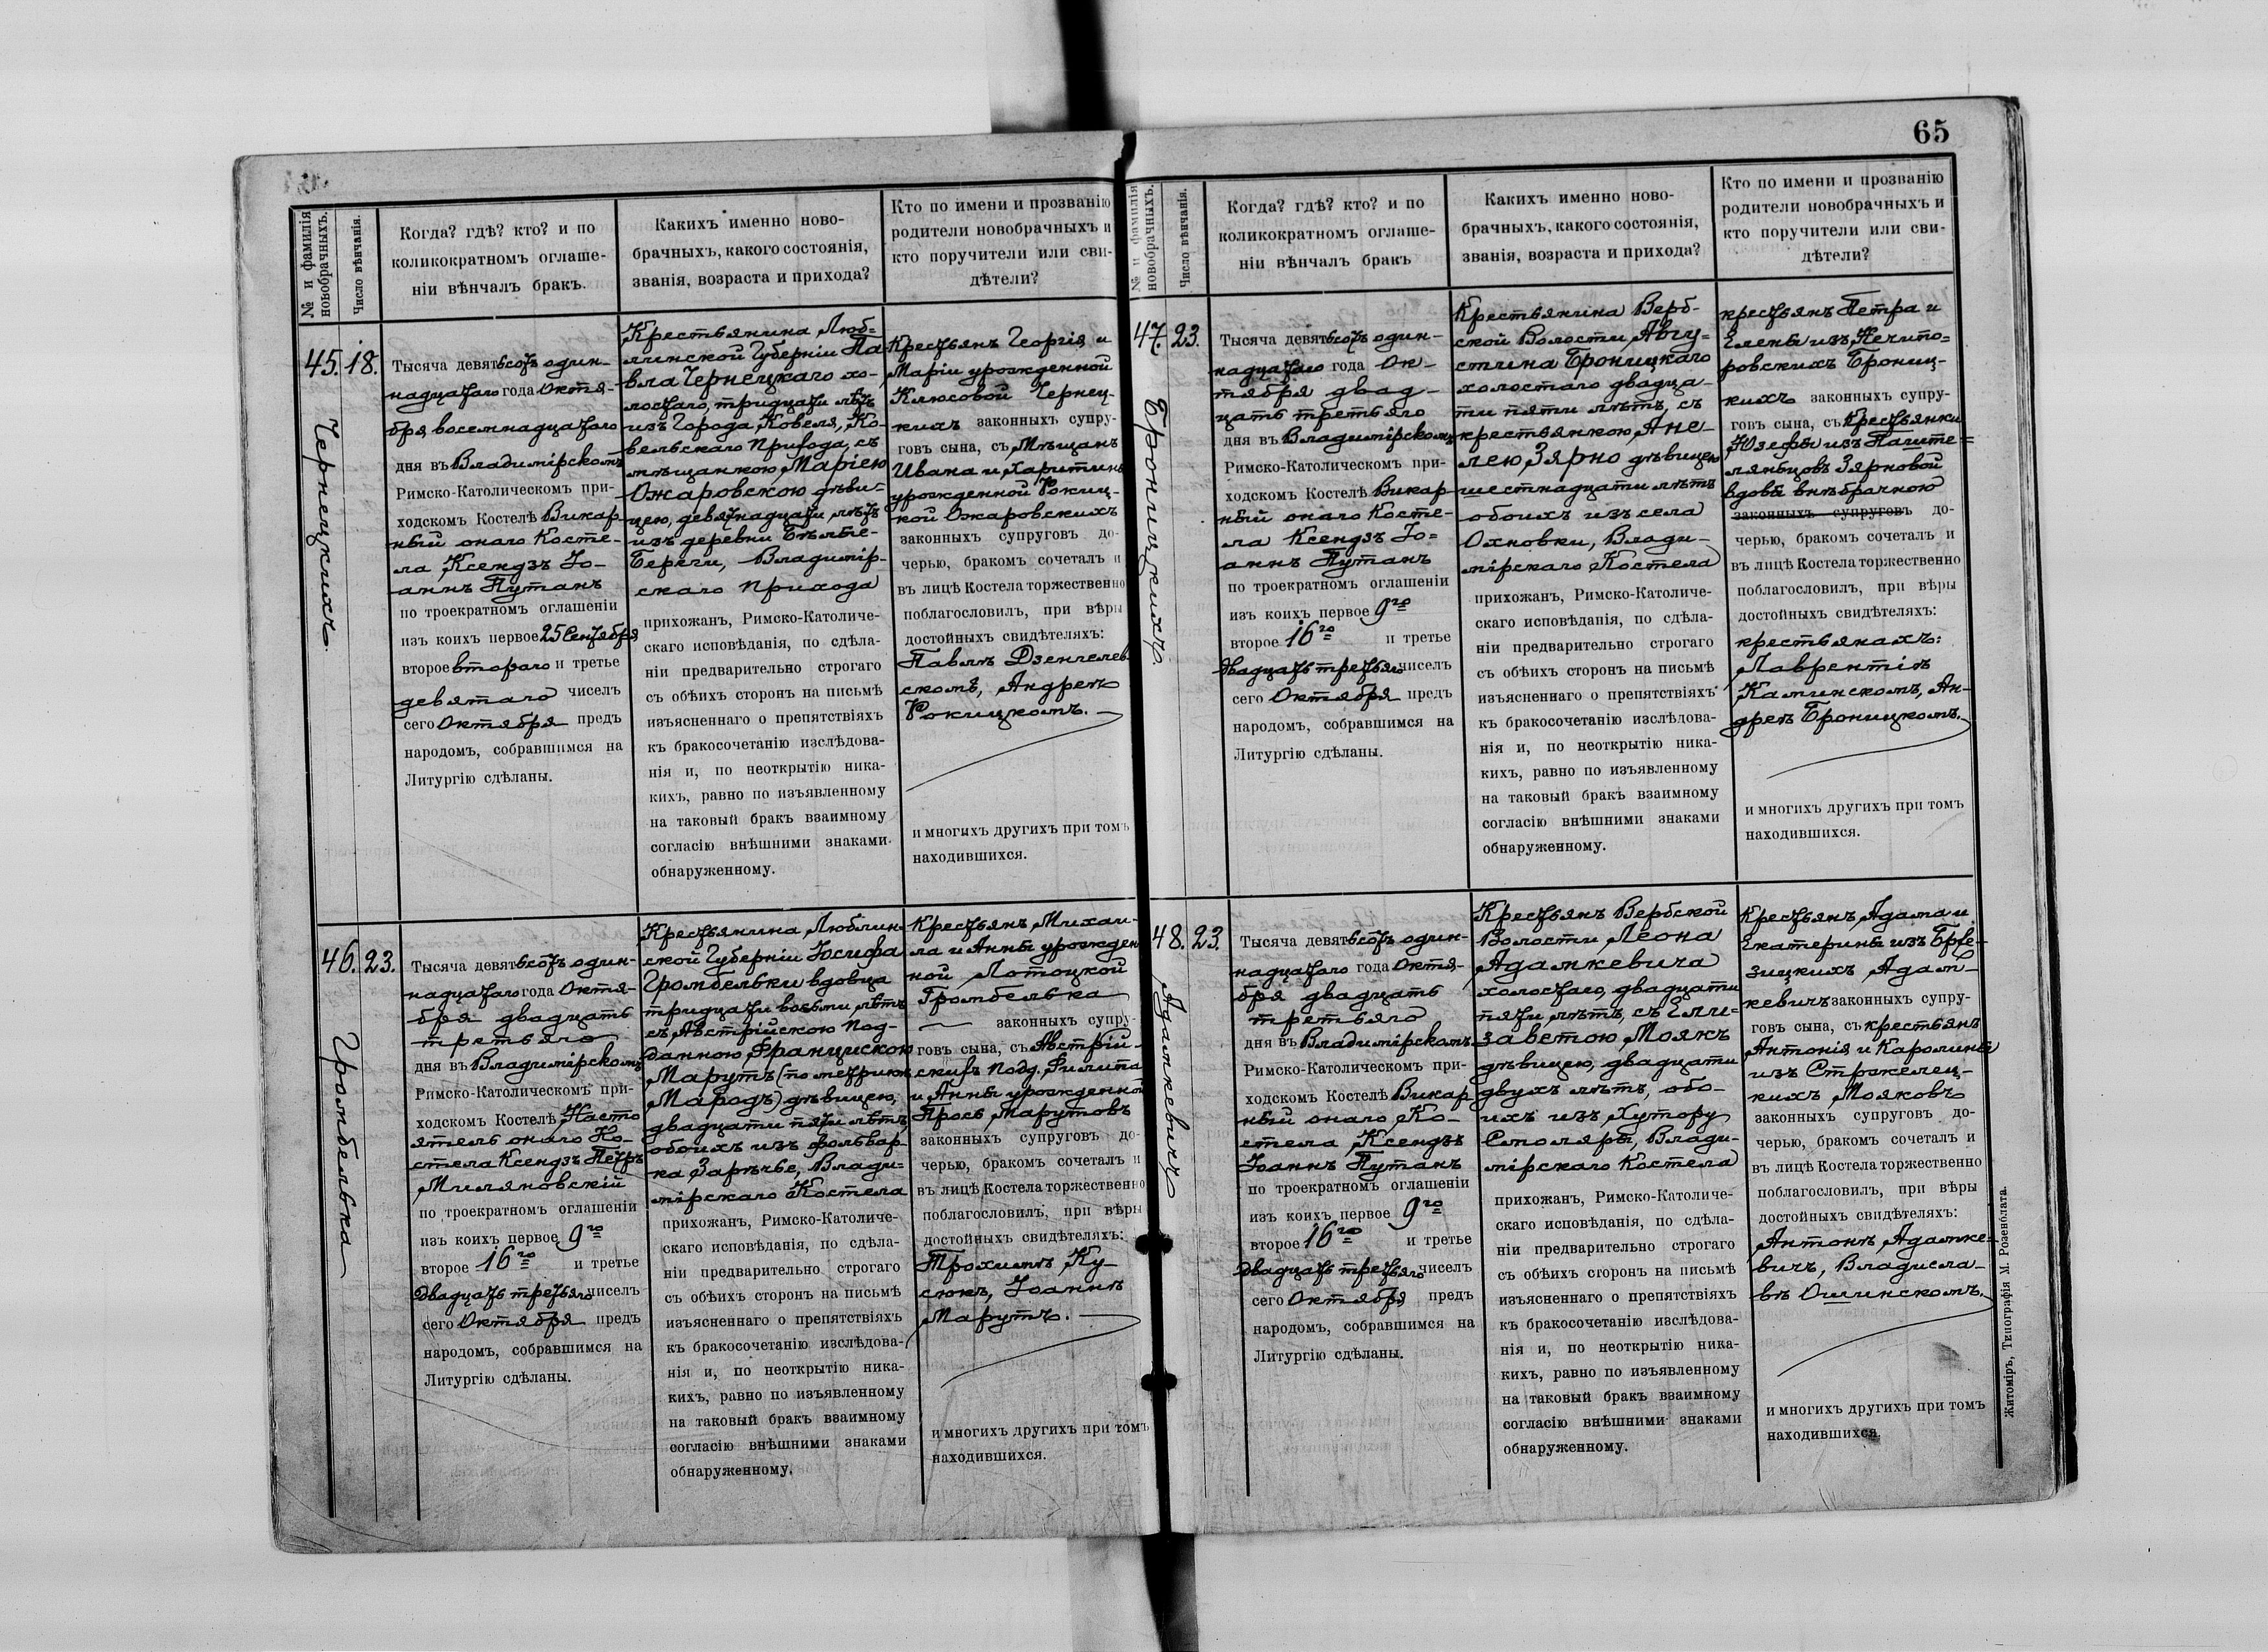 65
№ и фамилія
новобрачныхъ.
Число вѣнчанія.
Когда? гдѣ? кто? и по
коликократномъ оглаше-
ніи вѣнчалъ бракъ.
Каких­ъ именно ново-
брачныхъ, какого состоянія,
званія, возраста и прихода?
Кто по имени и прозванію
родители новобрачныхъ и
кто поручители или сви-
дѣтели?
45.
Чернецкихъ.
18.
Тысяча девятьсотъ один-
надцатаго года Октя-
бря восемнадцатаго
дня въ Владимірскомъ
Римско-Католическомъ при-
ходскомъ Костелѣ Викар-
ный онаго Косте-
ла Ксендзъ Іо-
аннъ Путанъ
по троекратномъ оглашеніи
изъ коихъ первое 25 Сентября
второе втораго и третье
девятаго чиселъ
сего Октября предъ
народомъ, собравшимся на
Литургію сдѣланы.
Крестьянина Люб=
линской Губерніи Па
вла Чернецкаго хо-
лостаго, тридцати лѣтъ
изъ города Ковеля, Ко-
вельскаго Прихода, съ
мѣщанкою Маріею
Ожаровскою дѣви-
цею, девятнадцати лѣтъ
изъ деревни Бѣлые-
Береги, Владимір-
скаго Прихода
прихожанъ, Римско-Католиче-
скаго исповѣданія, по сдѣла-
ніи предварительно строгаго
съ обѣихъ сторонъ на письмѣ
изъясненнаго о препятствіяхъ
къ бракосочетанію изслѣдова-
нія и, по неоткрытію ника-
кихъ, равно по изъявленному
на таковый бракъ взаимному
согласію внѣшними знаками
обнаруженному.
Крестьянъ Георгія и
Маріи урожденной
Клюсовой Чернец-
кихъ законныхъ супру-
говъ сына, съ Мѣщанъ
Ивана и Харитины
урожденной Рокиц-
кой Ожаровскихъ
законныхъ супруговъ до-
черью, бракомъ сочеталъ и
въ лицѣ Костела торжественно
поблагословилъ, при вѣры
достойныхъ свидѣтеляхъ:
Павлѣ Дзенгелев-
скомъ, Андреѣ
Рокицкомъ.
и многихъ другихъ при томъ
находившихся.
46.
Громбелька
23.
Тысяча девятьсотъ один-
надцатаго года Октя-
бря двадцать
третьяго
дня въ Владимірскомъ
Римско-Католическомъ при-
ходскомъ Костелѣ Насто
ятель онаго Ко-
стела Ксендзъ Петръ
Миляновскій
по троекратномъ оглашеніи
изъ коихъ первое 9го
второе 16го и третье
двадцать третьяго чиселъ
сего Октября предъ
народомъ, собравшимся на
Литургію сдѣланы.
Крестьянина Люблин-
ской Губерніи Іосифа
Громбельки вдовца
тридцати восьми лѣтъ
съ Австрійскою Под-
данною Францискою
Марутъ (по метрикѣ
Мародъ) дѣвицею,
двадцати пяти лѣтъ,
обоихъ изъ фольвар-
ка Зарѣчье, Влади=
мірскаго Костела
прихожанъ, Римско-Католиче-
скаго исповѣданія, по сдѣла-
ніи предварительно строгаго
съ обѣихъ сторонъ на письмѣ
изъясненнаго о препятствіяхъ
къ бракосочетанію изслѣдова-
нія и, по неоткрытію ника-
кихъ, равно по изъявленному
на таковый бракъ взаимному
согласію внѣшними знаками
обнаруженному.
Крестьянъ Михаи-
ла и Анны урожден
ной Лотоцкой
Громбелька
законныхъ супру-
говъ сына, съ Австрій-
скихъ подд. Филипа
и Анны урожденной
Прось Марутовъ
законныхъ супруговъ до-
черью, бракомъ сочеталъ и
въ лицѣ Костела торжественно
поблагословилъ, при вѣры
достойныхъ свидѣтеляхъ:
Трохимѣ Ку-
сюкѣ, Іоаннѣ
Марутъ.
и многихъ другихъ при томъ
находившихся.
№ и фамилія
новобрачныхъ.
Число вѣнчанія.
Когда? гдѣ? кто? и по
коликократномъ оглаше-
ніи вѣнчалъ бракъ
Какихъ именно ново-
брачныхъ, какого состоянія,
званія, возраста и прихода?
Кто по имени и прозванію
родители новобрачныхъ и
кто поручители или сви-
дѣтели?
47.
Броницкихъ.
23.
Тысяча девятьсотъ один-
надцатаго года Ок-
тября двад-
цать третьяго
дня въ Владимірскомъ
Римско-Католическомъ при-
ходскомъ Костелѣ Викар-
ный онаго Косте-
ла Ксендзъ Іо=
аннъ Путанъ
по троекратномъ оглашеніи
изъ коихъ первое 9го
второе 16го и третье
двадцать третьяго чиселъ
сего Октября предъ
народомъ, собравшимся на
Литургію сдѣланы.
Крестьянина Верб-
ской Волости, Авгу=
стина Броницкаго
холостаго двадца-
ти пяти лѣтъ, съ
крестьянкою Ане-
лею Зярно дѣвицею
шестнадцати лѣтъ
обоихъ изъ села
Охновки, Влади-
мірскаго Костела
прихожанъ, Римско-Католиче-
скаго исповѣданія, по сдѣла-
ніи предварительно строгаго
съ обѣихъ сторонъ на письмѣ
изъясненнаго о препятствіяхъ
къ бракосочетанію изслѣдова-
нія и, по неоткрытію ника-
кихъ, равно по изъявленному
на таковый бракъ взаимному
согласію внѣшними знаками
обнаруженному.
крестьянъ Петра и
Елены изъ Нечипо=
ровскихъ Брониц-
кихъ законныхъ супру-
говъ сына, съ Крестьянки
Юзефы изъ
Зярновой
вдовы внѣбрачною
законныхъ супруговъ до-
черью, бракомъ сочеталъ и
въ лицѣ Костела торжественно
поблагословилъ, при вѣры
достойныхъ свидѣтеляхъ:
крестьянахъ:
Лаврентіѣ
Каминскомъ, Ан-
дреѣ Броницкомъ.
и многихъ другихъ при томъ
находившихся.
48.
Адамкевичъ
23.
Тысяча девятьсотъ один-
надцатаго года Октя-
бря двадцать
третьяго
дня въ Владимірскомъ
Римско-Католическомъ при-
ходскомъ Костелѣ Викар
ный онаго Ко-
стела Ксендзъ
Іоаннъ Путанъ
по троекратномъ оглашеніи
изъ коихъ первое 9го
второе 16го и третье
двадцать третьяго чиселъ
сего Октября предъ
народомъ, собравшимся на
Литургію сдѣланы.
Крестьянъ Вербской
Волости Леона
Адамкевича
холостаго, двадцати
пяти лѣтъ, съ Ели=
заветою Моякъ
дѣвицею, двадцати
двухъ лѣтъ, обо-
ихъ изъ Хутору
Смоляры, Влади-
мірскаго Костела
прихожанъ, Римско-Католиче-
скаго исповѣданія, по сдѣла-
ніи предварительно строгаго
съ обѣихъ сторонъ на письмѣ
изъясненнаго о препятствіяхъ
къ бракосочетанію изслѣдова-
нія и, по неоткрытію ника-
кихъ, равно по изъявленному
на таковый бракъ взаимному
согласію внѣшними знаками
обнаруженному.
Крестьянъ Адама и
Екатерины изъ Брже-
зицкихъ Адам-
кевичъ законныхъ супру-
говъ сына, съ крестьянъ
Антонія и Каролины
изъ Стржелец-
кихъ Мояковъ
законныхъ супруговъ до-
черью, бракомъ сочеталъ и
въ лицѣ Костела торжественно
поблагословилъ, при вѣры
достойныхъ свидѣтеляхъ:
Антонѣ Адамке-
вичъ, Владисла-
вѣ Ошинскомъ.
и многихъ другихъ при томъ
находившихся.
Житоміръ, Типографія М. Розенблата.